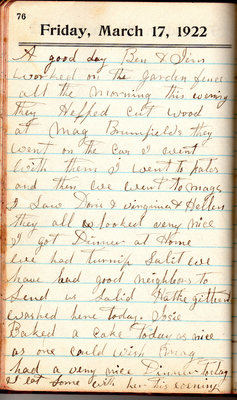 76
Friday, March 17, 1922
A good day Ben & Jim
worked on the garden fence
all the morning this evening
they Helped cut wood
at Mag Brumfields they
went on the car I went
with them I went to Kates
and then we went to Mags
I Saw Doris & Virginia & Hellen
they all looked very nice
I got Dinner at Home
we had turnip Salit we
have had good neighbors to
Send us Salid
washed here today. Josie
Baked a cake Today as nice
as one could wish Mag
had a very nice Dinner today
I eat Some with her this evening